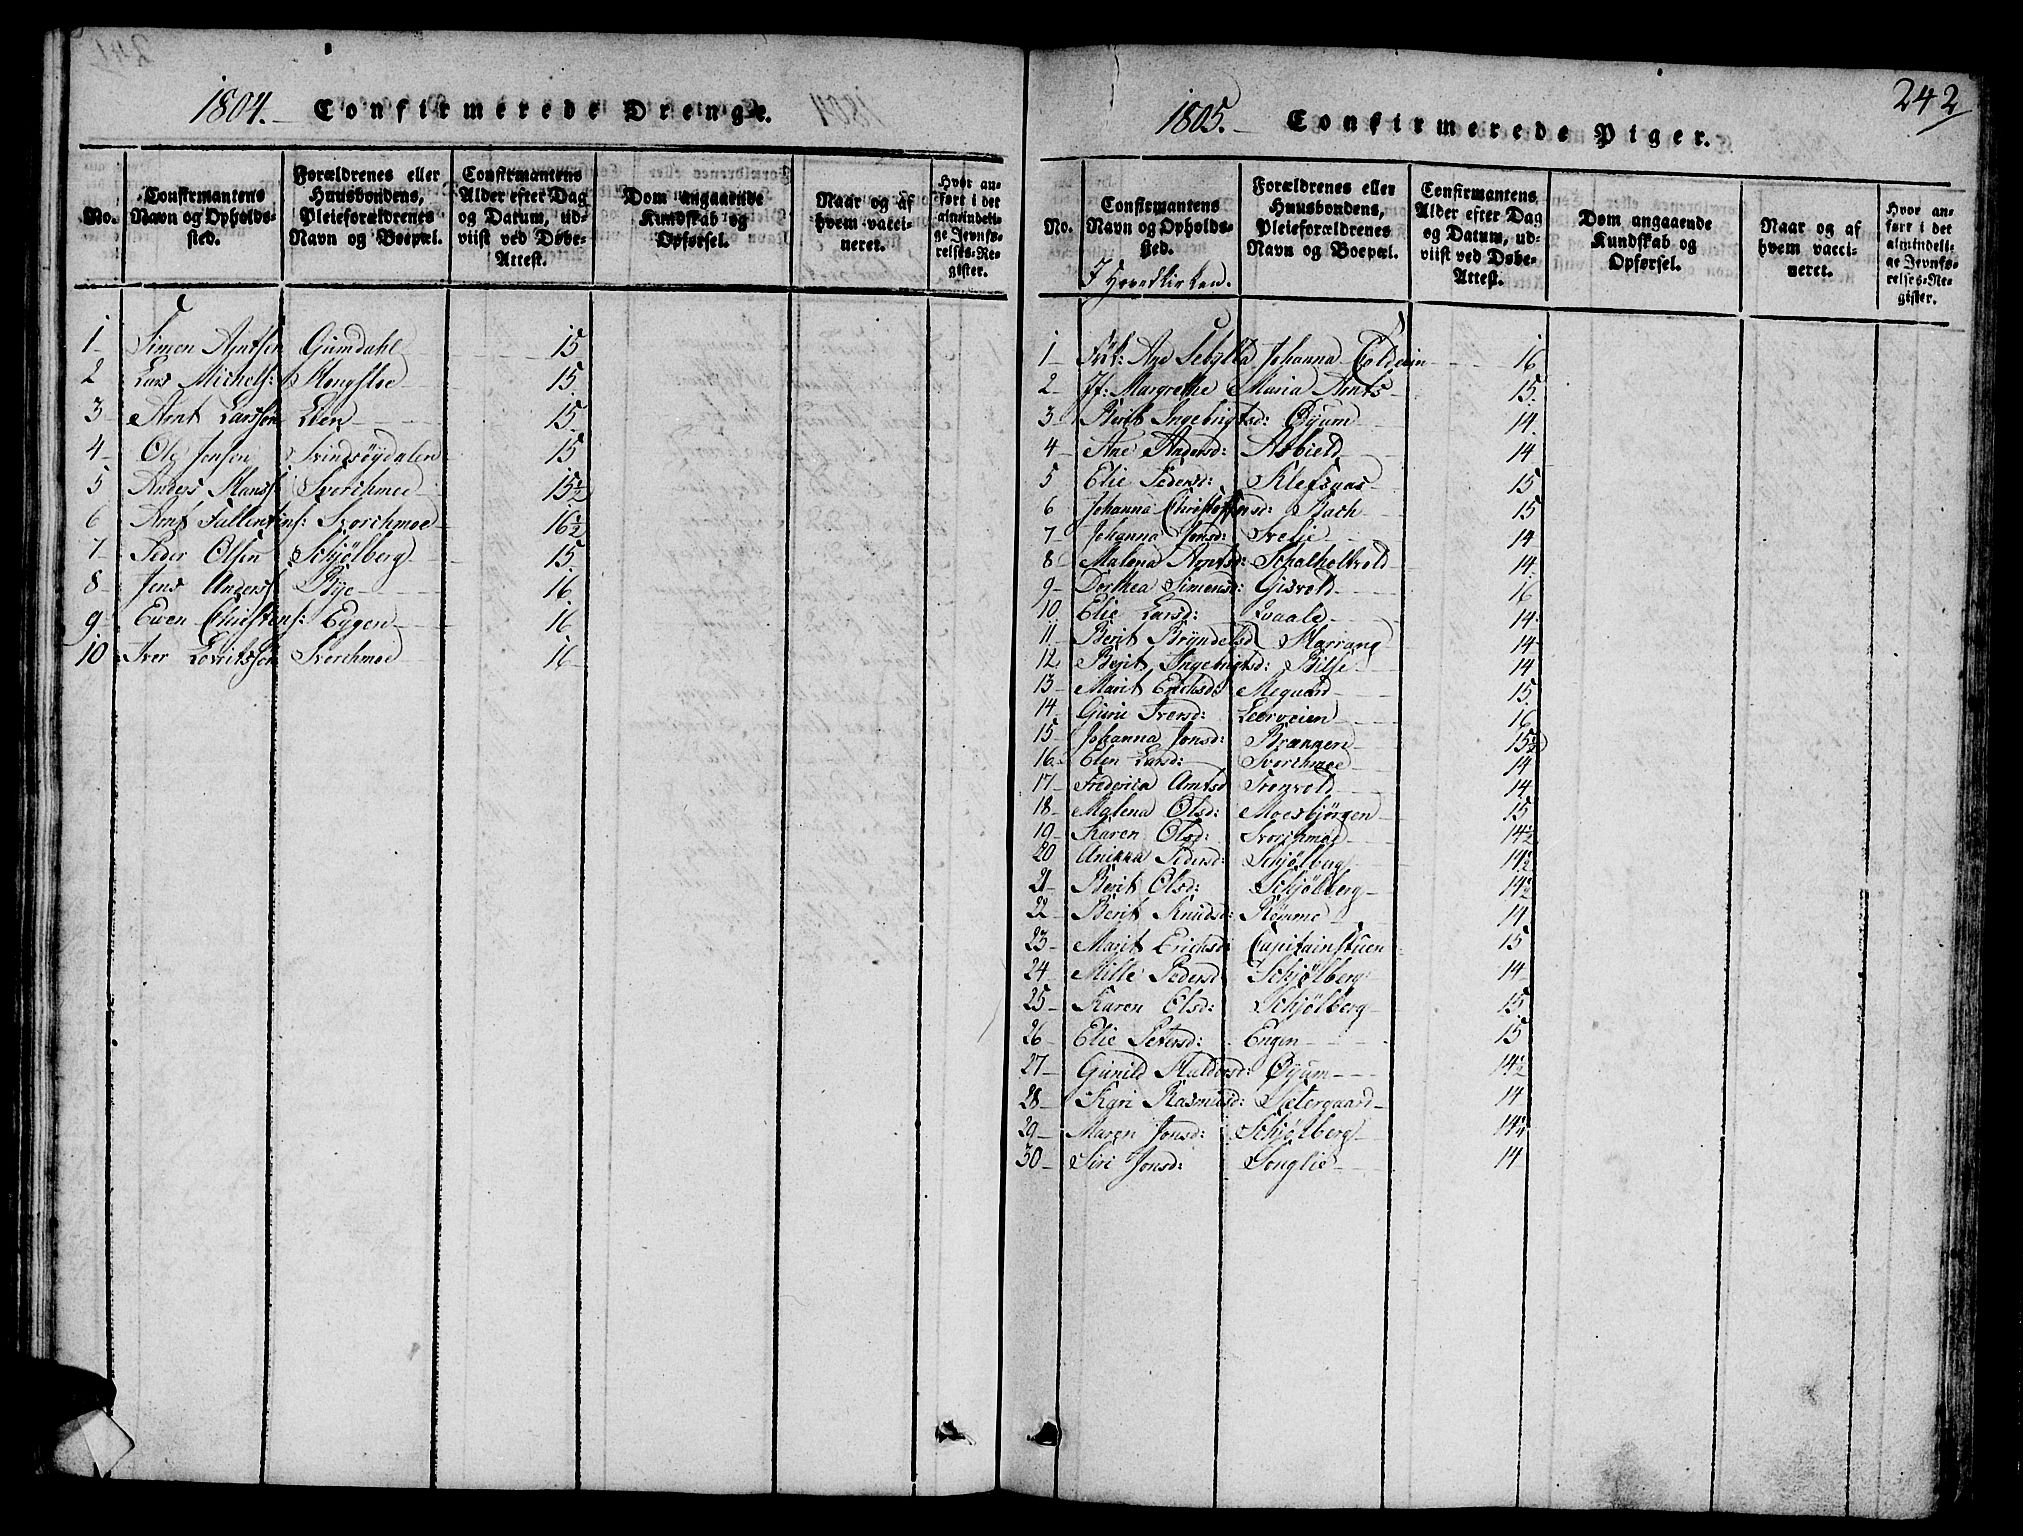 1804. Confirmerede Drenge.
No.
Confirmantens Navn og Opholdssted.
Forældrenes eller Huusbondens, Pleieforældrenes Navn og Boepæl.
Confirmantens Alder efter Dag og Datum, udviist ved Døbe-Attest.
Dom angaaende Kundskab og Opførsel.
Naar og af hvem vaccineret.
Hvor anført i det almindelige Jevnførelses-Register.
1 Simon Arntsen Gumdahl 15
2 Lars Michels: Kongsloe 15
3 Arnt Larssøn Lien 15
4 Ole Jonsen Svindsøydalen 15
5 Anders Hanss: Svorchmoe 15½
6 Arnt Fallentins: Svorchmoe 16½
7 Peder Olsen Schjølberg 15
8 Jens Anderss: Bye 16
9 Ewen Christens: Eygen 16
10 Iver Lovritssøn Svorchmoe 16
242
1805. Confirmerede Piger.
No.
Confirmantens Navn og Opholdssted.
I Hovedkirken.
Forældrenes eller Huusbondens, Pleieforældrenes Navn og Boepæl.
Confirmantens Alder efter Dag og Datum, udviist ved Døbe-Attest.
Dom angaaende Kundskab og Opførsel.
Naar og af hvem vaccineret.
Hvor anført i det almindelige Jevnførelses-Register.
1 Frøk: Ane Sebylla Johanna Coldevin 16
2 Jf: Margrethe Maria Arnts 15
3 Berit Ingebrigtsd: Øyum 14
4 Ane Andersd: Asbield 14
5 Elie Pedersd: Klefsaas 15
6 Johanna Christophersd: Bach 15
7 Johanna Jonsd: Svelie 14
8 Malena Arntsd: Schalholtvold 14
9 Dorthea Simonsd: Gisvold 16
10 Elie Larsd: Evaale 14
11 Berit Bryndelsd Harrang 14
12 Berit Ingebrigtsd: Bilse 14
13 Marit Erichsd: Megaard 15
14 Guru Iversd: Leerveien 16
15 Johanna Jonsd: Brænnen 15½
16 Elen Larsd: Svorchmoe 14
17 Frederica Arntsd Tronvold 14
18 Malena Olsd: Moesbjørgen 15
19 Karen Olsd: Svorchmoe 14½
20 Anikka Pedersd: Schjølberg 14½
21 Berit Olsd: Schjølberg 14½
22 Berit Knudsd: Rømme 14
23 Marit Erichsd: Capitainstuen 15
24 Mille Pedersd Schjølberg 14
25 Karen Olsd: Schjølberg 15
26 Elie Petersd: Engen 15
27 Gunild Haldorsd: Øyum 14½
28 Kari Rasmusd: Sætergaard 14
29 Maren Jonsd: Schjølberg 14¼
30 Siri Jonsd: Songlie 14